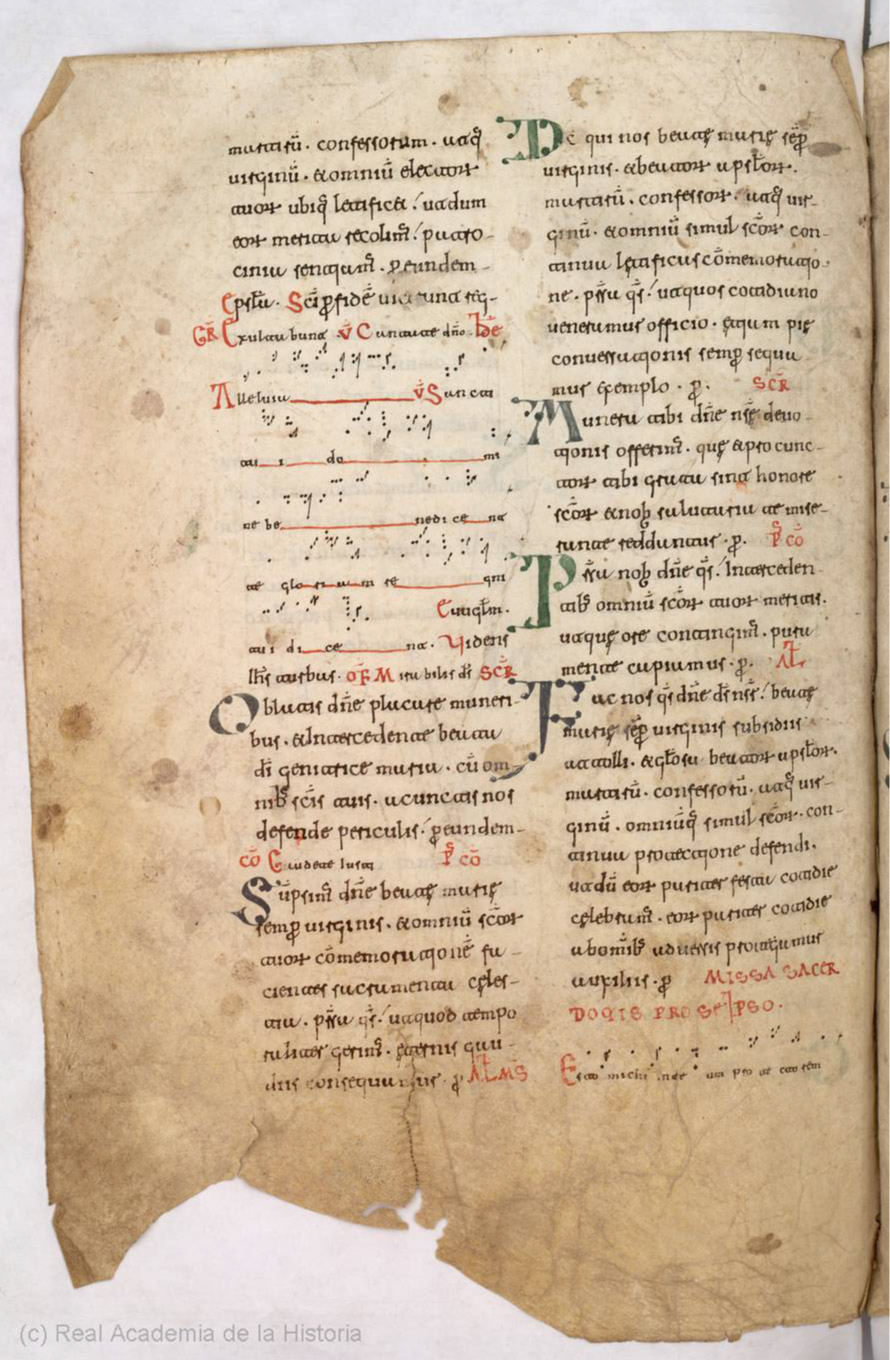 martirũ · confessorum · atq̃
uirginũ · & omniũ electorꝝ
tuorꝝ ubiq̃ letifica ; ut dum
eorꝝ merita recolim᷒ ; patro-
cinia sentiam᷒ · ꝑ eundem -
Ep̃stła · Sc̃i ꝑ fidẽ
GR̃ Exultabunt V̄ Cantate dño · b̃e
Alleluia V̄ Sancti
tu i do mi
ne be nedi ce nt
te glo ri am re gni
tui di ce nt · Euãgłm · Uidens
Ih̃s turbas · OF̃ Mirabilis ds̃ SCR̃
Oblatis dñe placare muneri-
bus · & intercedente beata
dī genitrice maria · cũ om-
nib᷒ sc̃is tuis · a cunctis nos
defende periculis ; ꝑ eundem -
CÕ Gaudete iusti P̃ CÕ
Sũpsim᷒ dñe beatę marię
semꝑ uirginis · & omniũ sc̃orꝝ
tuorꝝ cõmemorationẽ fa -
cientes sacramenta cęles-
tia · p̃sta q̃s ; ut quod tempo
raliter gerim᷒ · ęternis gau -
diis consequamur · ꝑ AL̃ MS̃
Ds̃ qui nos beatę marię sẽꝑ
uirginis · & beatorꝝ apłorꝝ ·
martirũ · confessorꝝ · atq̃ uir-
ginũ · & omniũ simul sc̃orꝝ con-
tinua lętificas cõmemoratio -
ne · p̃sta q̃s ; ut quos cotidiano
ueneramur officio · etiam pię
conuersationis semꝑ sequa
mur exemplo · ꝑ · SCR̃
Munera tibi dñe nr̃ę deuo -
tionis offerim᷒ · quę & pro cunc-
torꝝ tibi grata sint honore
sc̃orꝝ & nob᷒ salutaria te mise-
rante reddantur · ꝑ · P̃ CÕ
P̃sta nob᷒ dñe q̃s ; Interceden
tib᷒ omniũ sc̃orꝝ tuorꝝ meritis ·
ut quę ore contingim᷒ · pura
mente capiamus · ꝑ · AL̃
Fac nos q̃s dñe ds̃ nr̃ ; beatę
marię sẽꝑ uirginis subsidiis
attolli · & gł̃osa beatorꝝ apłorꝝ ·
martirũ · confessorũ · atq̃ uir-
ginũ · omniũq̃ simul sc̃orꝝ · con-
tinua protectione defendi ·
ut dũ eorꝝ pariter festa cotidie
cęlebram᷒ · eorꝝ pariter cotidie
ab omĩb᷒ aduersis protegamur
auxiliis · ꝑ MISSA SACER
DOTIS PRO SE IPSO ·
Esto michi